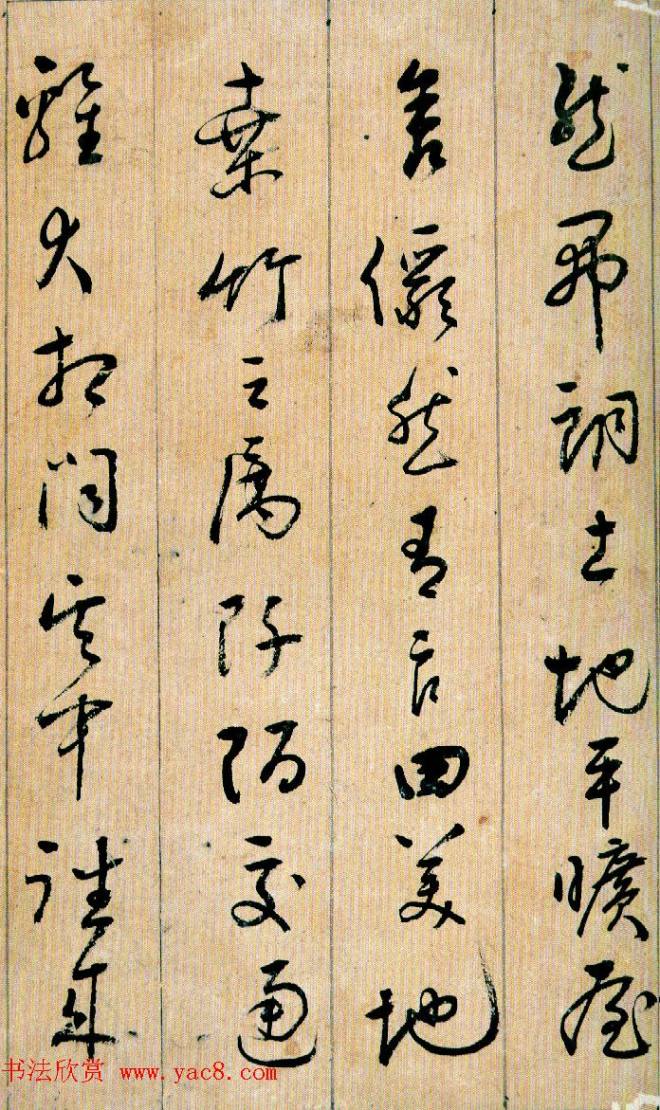 然開朗土地平曠屋
舍儼然有良田美地
桑竹之属阡陌交通
雞犬相聞其中往来
书法欣赏 www.yac8.com